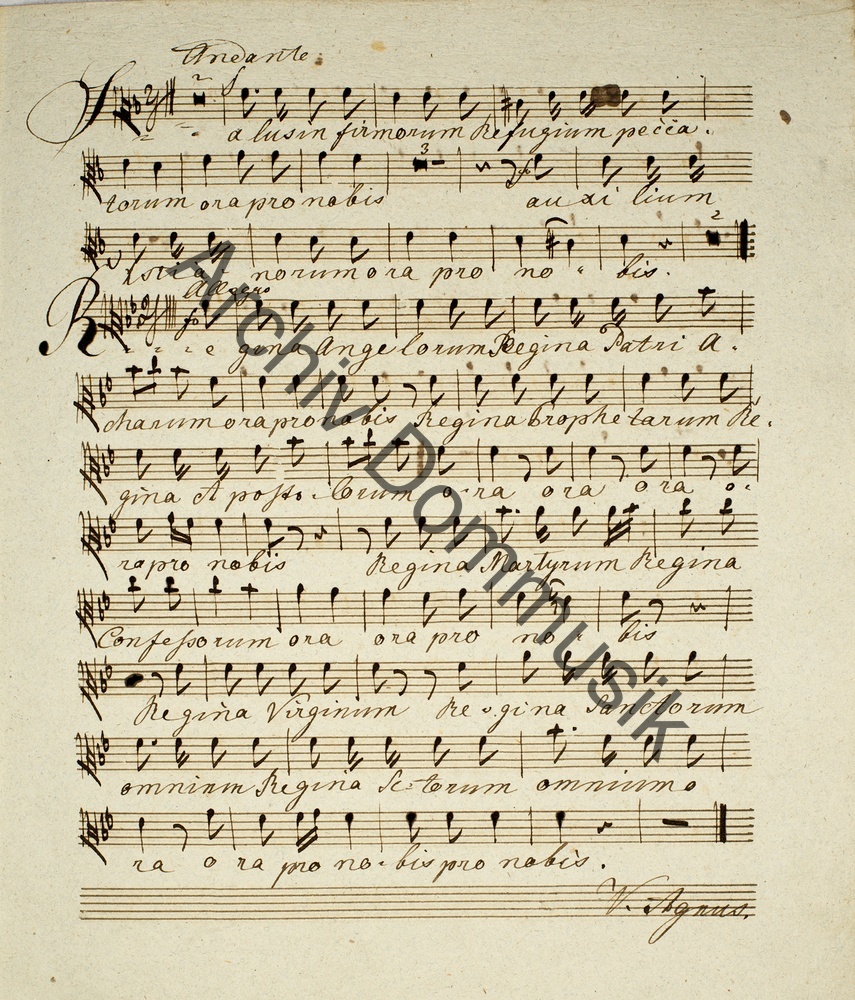 Andante.
2 f
S alus in firmorum Refugium pecca.
3
torum ora pro nobis auxi lium
2
norum ora pro no - bis.
Allegro
R e gina Angelorum Regina Patri A.
charum ora pro nobis Regina Prophetarum Re.
gina A posto. lorum o ra ora ora o.
ra pro nobis Regina Martyrum Regina
Confessorum ora ora pro no bis
Regina Virginum Re gina Sanctorum
omnium Regina Sctorum omnium o
ra o ra pro no-bis pro nobis.
V. Agnus.
Archiv Dommusik